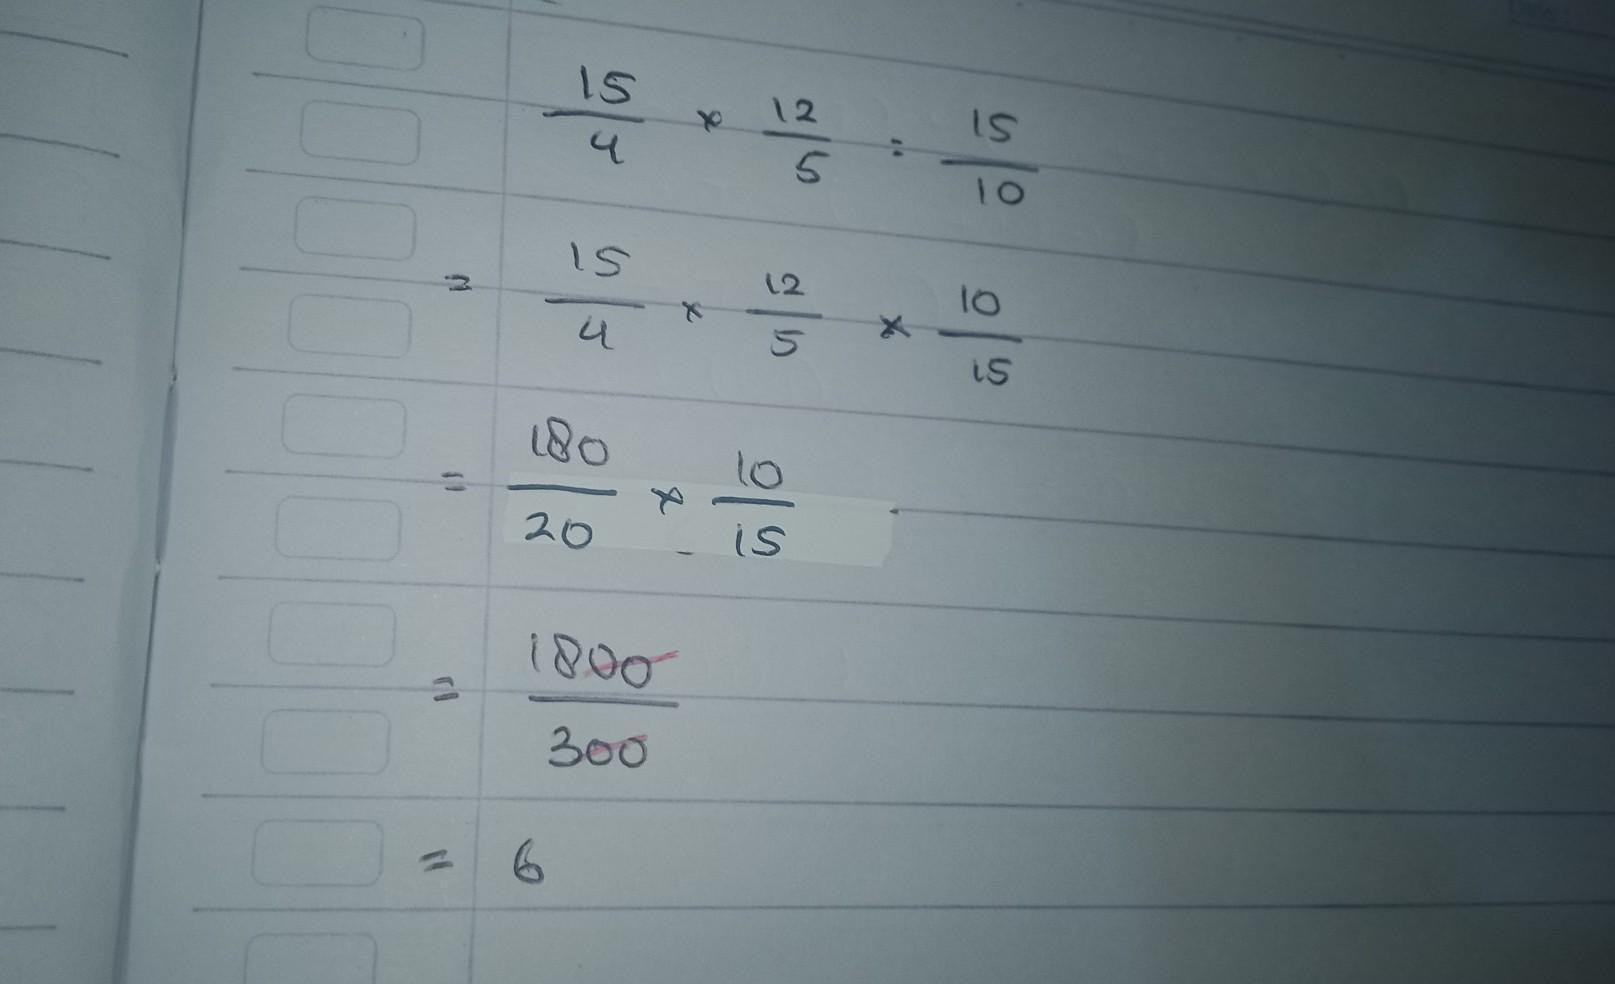 15/4 × 12/5 : 15/10
= 15/4 × 12/5 × 10/15
= 180/20 × 10/15
= 1800/300
= 6